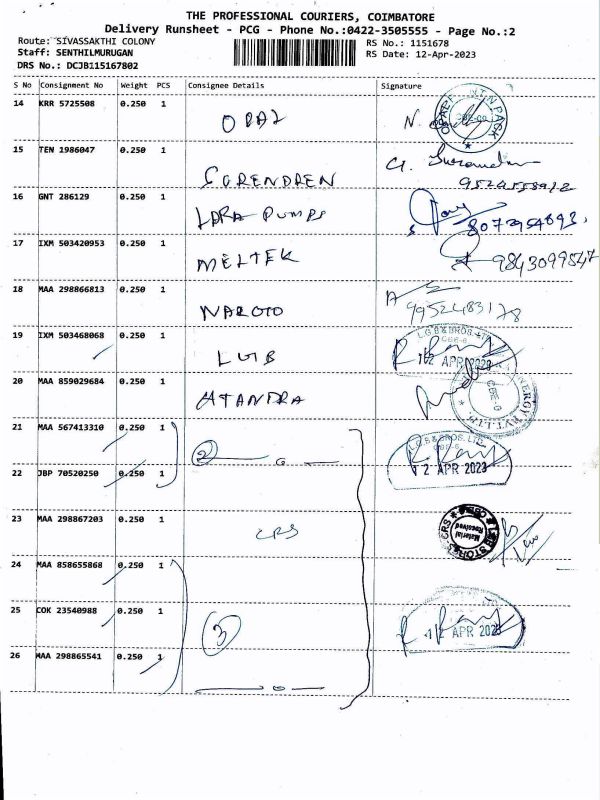 THE PROFESSIONAL COURIERS, COIMBATORE
Delivery Runsheet - PCG - Phone No.:0422-3505555 - Page No.:2
Route: SIVASSAKTHI COLONY RS No.: 1151678
Staff: SENTHILMURUGAN RS Date: 12-Apr-2023
DRS No.: DCJB115167802
S No Consignment No Weight PCS Consignee Details Signature
14 KRR 5725508 0.250 1
OPAL N.
15 TEN 1986047 0.250 1
SURENDREN G.
16 GNT 286129 0.250 1
LARA PUMPS 8072954893
17 IXM 503420953 0.250 1
MELTEK 9843099547
18 MAA 298866813 0.250 1
NAROTO 9952483178
19 IXM 503468068 0.250 1
LGB L.G.B & BROS. LTD CBE-6 12 APR 2023
20 MAA 859029684 0.250 1
CBE-6 ENERGY PVT.LTD.
21 MAA 567413310 0.250 1
2 L.G.B & BROS. LTD CBE-6
22 JBP 70520250 0.250 1 12 APR 2023
23 MAA 298867203 0.250 1
Material Received STORES
24 MAA 858655868 0.250 1
25 COK 23540988 0.250 1
3 12 APR 2023
26 MAA 298865541 0.250 1